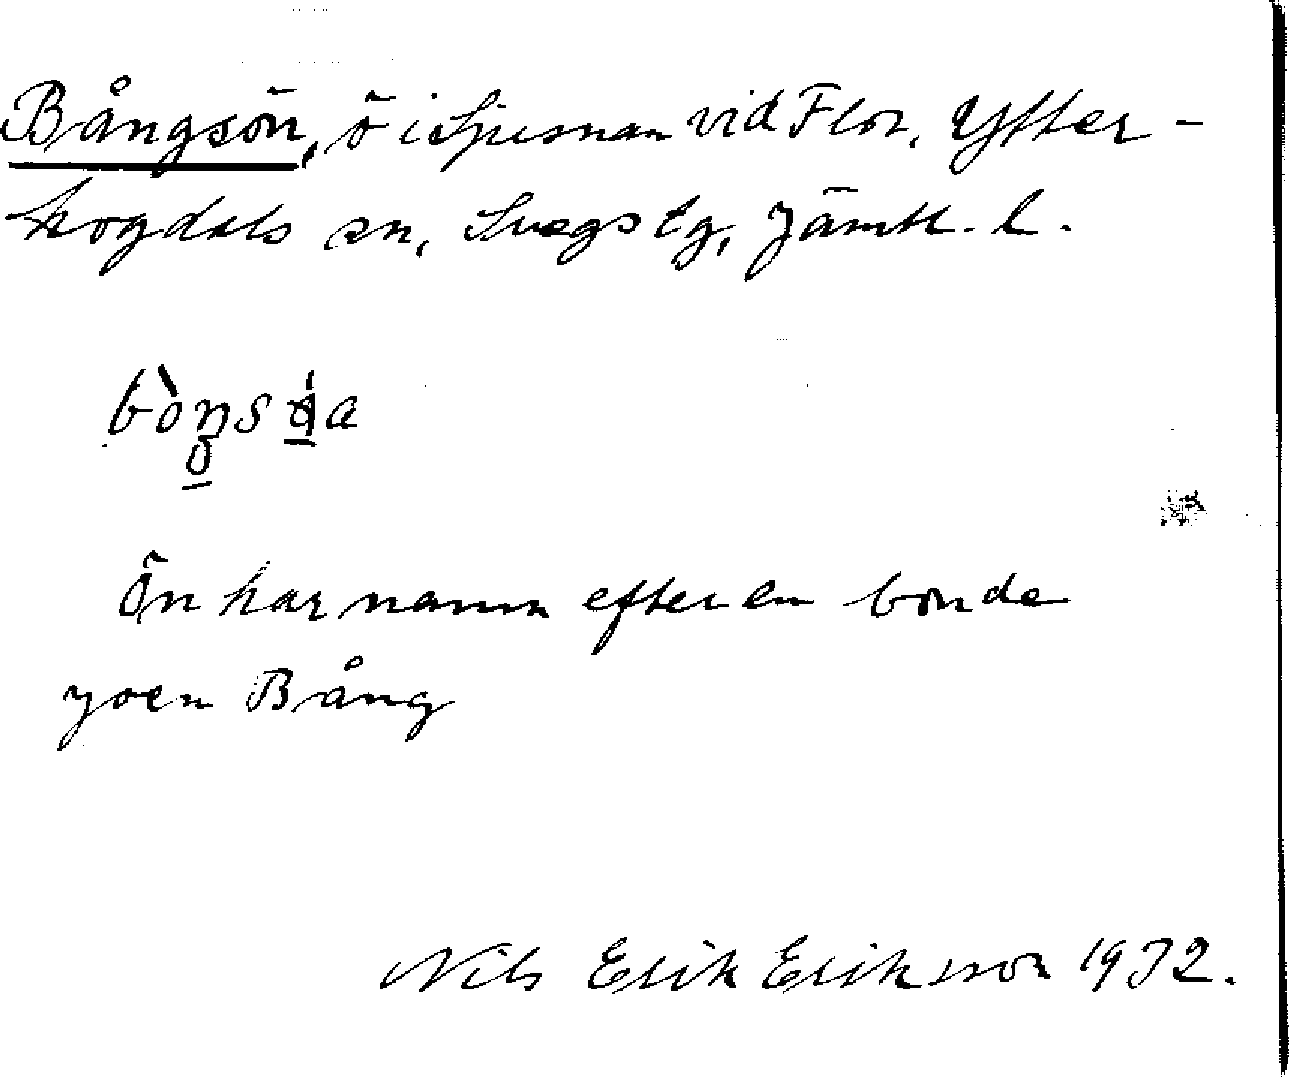 Bångsön, ö i Ljusnan vid Flor, Ytter-
hogdals sn, Svegs tg, Jämtl. l.
Ön har namn efter en bonde
Joen Bång
Nils Erik Eriksson 1972.